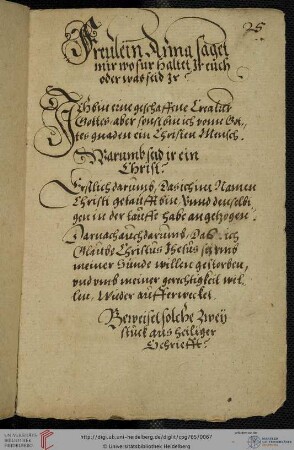 25
Freulein Anna saget
mir wofur haltet Ir euch
oder was seid Ir
Ich bin eine geschaffene Creatur
Gottes aber sonst bin ich vonn Got
tes gnaden ein Christen Mensch.
Warumb seid ir ein
Christ?
Erstlich darumb, Das ich im Namen
Christi getaufft bin, Vnnd denselbi
gen in der tauffe habe angezogen.
Darnach auch darumb, Das ich
Glaube Christus Jhesus sey umb
meiner Sünde willen gestorben,
vnd vmb meiner gerechtigkeit wil
len, Wieder aufferwecket
Beweiset solche Zwey
stück aus heiliger
Schrifft?
UNIVERSITÄTS-
BIBLIOTHEK
HEIDELBERG
http://digi.ub.uni-heidelberg.de/diglit/cpg785/0067
© Universitätsbibliothek Heidelberg